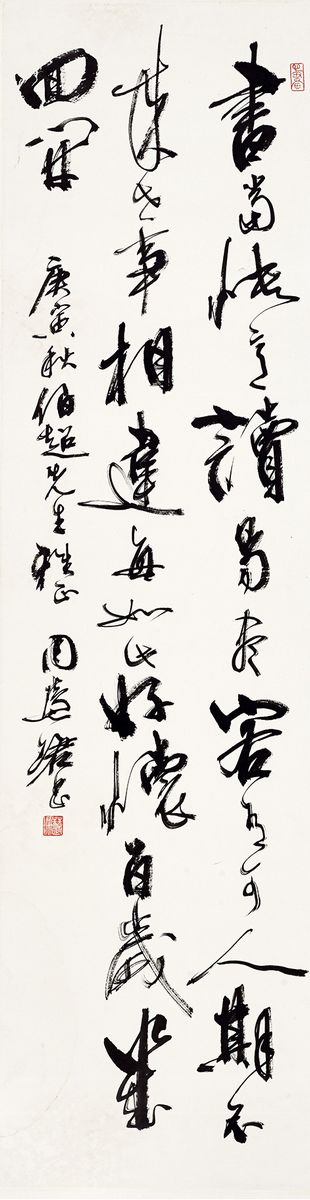 書當快意讀易盡客有可人期不
來世事相違每如此好懷百歲幾
回開 庚寅秋伯超先生雅正 周慧珺書